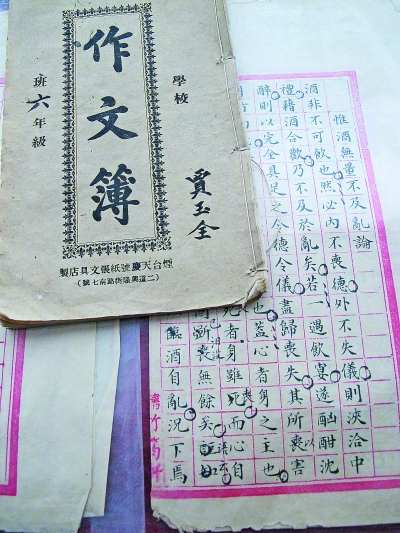 學校
作文簿
班六年級
賈玉全
煙台天慶號紙張文具店製
(二道興隆街路南七號)
惟酒無量不及亂論
酒非不可飲也然必內不喪德外不失儀則浹洽中
禮藉酒合歡乃不及於亂矣若一過飲宴遂酗酣沈
醉則以完全具足之令德令儀盡歸喪失其所喪害
也蓋心者身之主也
死者身雖死而心自
喪無餘矣
臨酒自亂況下焉